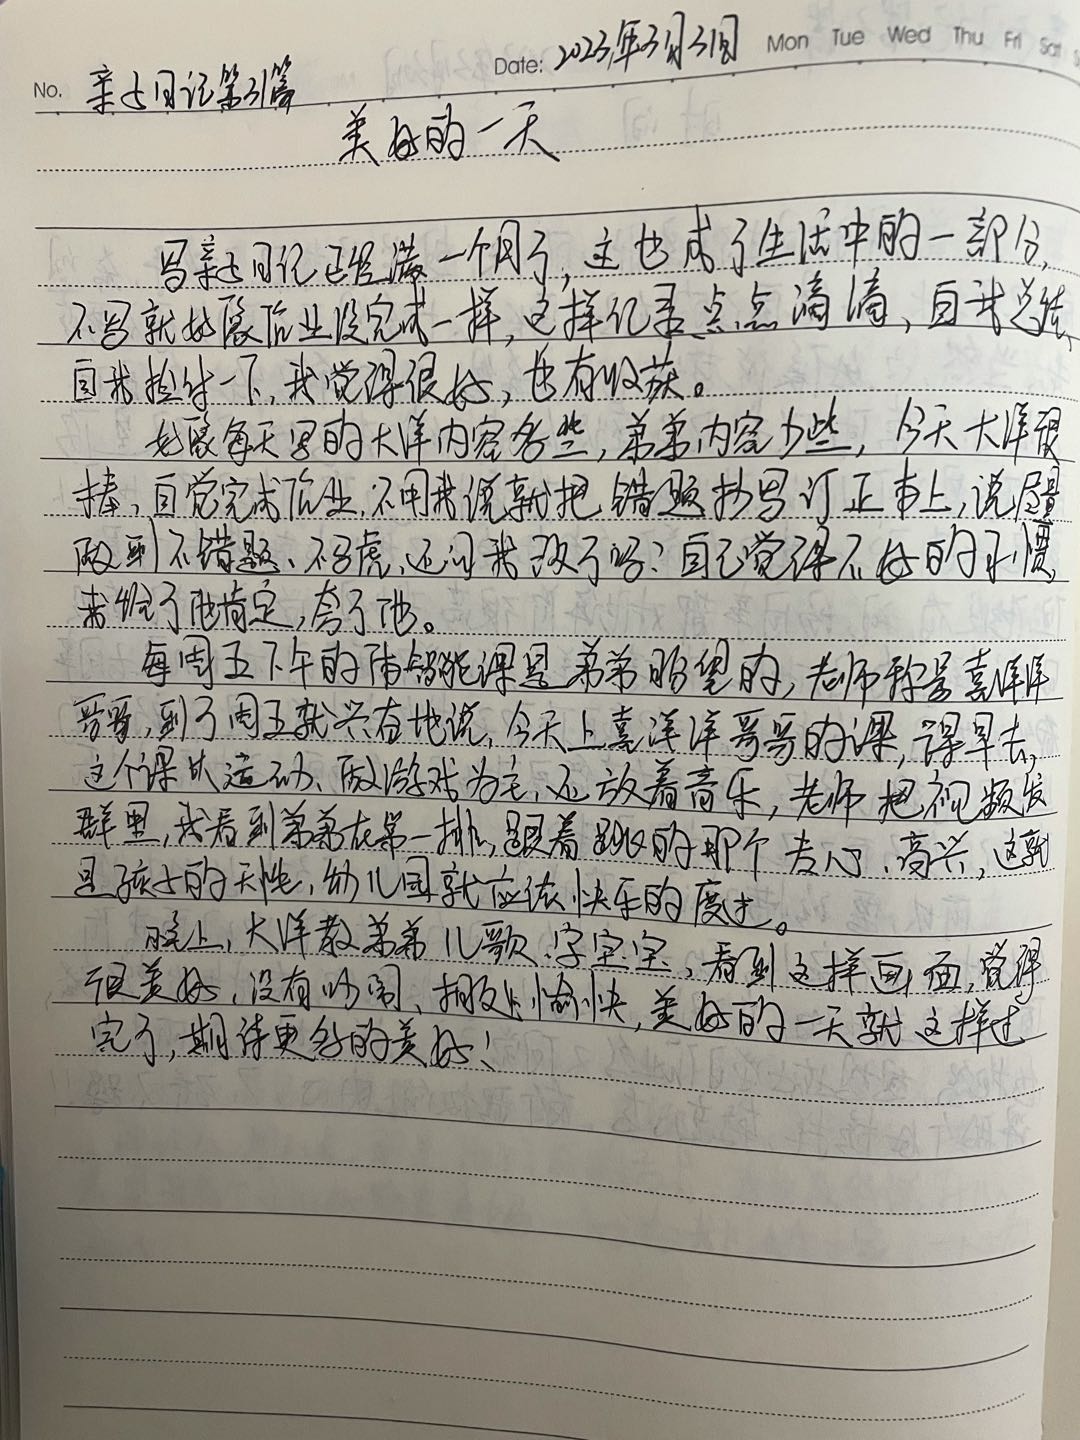 No. 亲子日记第31篇
Date: 2023年3月31日 Mon Tue Wed Thu Fri Sat
美好的一天
写亲子日记已经满一个月了，这也成了生活中的一部分，
不写就好像作业没完成一样，这样记录点点滴滴，自我总结，
自我检讨一下，我觉得很好，也有收获。
好像每天写的大洋内容多些，弟弟内容少些，今天大洋很
棒，自觉完成作业，不用我说就把错题抄写订正本上，说尽量
做到不错题、不马虎，还问我改了吗？自己觉得不好的习惯，
我给了他肯定，夸了他。
每周五下午的体智能课是弟弟盼望的，老师称是喜洋洋
哥哥，到了周五就兴奋地说，今天上喜洋洋哥哥的课，得早去，
这个课以运动、做游戏为主，还放着音乐，老师把视频发
群里，我看到弟弟在第一排，跟着跳的那个专心、高兴，这就
是孩子的天性，幼儿园就应该快乐的度过。
晚上，大洋教弟弟儿歌、字宝宝，看到这样画面，觉得
很美好，没有吵闹、相处愉快，美好的一天就这样过
完了，期待更多的美好！